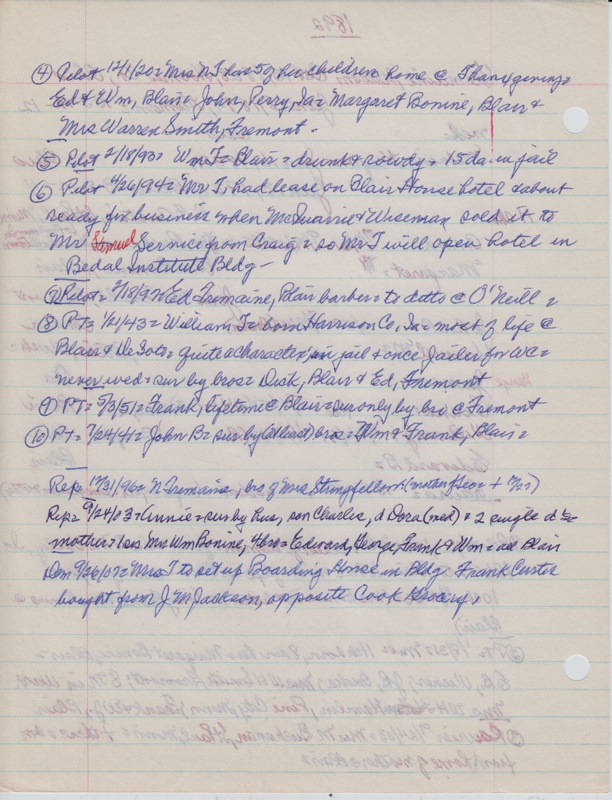 1892
④ Pilot 12/1/20 = Mrs N T has 5 of her children home @ Thanksgiving =
Ed & Wm, Blair = John, Perry, Ia = Margaret Bonine, Blair &
Mrs Warren Smith, Fremont -
⑤ Pilot 2/18/93 = Wm T = Blair = drunk & rowdy = 15 da. in jail
⑥ Pilot 4/26/94 = Mr T, had lease on Blair House hotel & about
ready for business when McQuarrie & Wiseman sold it to
Mr Samuel Service from Craig = so Mr T will open hotel in
Bedal Institute Bldg -
⑦ Pilot = 2/18/97 = Ed Tremaine, Blair barber = to ditto @ O'Neill =
⑧ PT = 1/21/43 = William T = born Harrison Co, Ia = most of life @
Blair & DeSoto = quite a character, in jail & once jailer for WC =
never wed = sur by bros = Dick, Blair & Ed, Fremont
⑨ PT = 5/3/51 = Frank, lifetime @ Blair = sur only by bro @ Fremont
⑩ PT = 7/24/41 = John B = sur by (atleast) bro = Wm & Frank, Blair =
Rep = 12/31/96 = N Tremaine, bro of Mrs Stringfellow = (mother of Geo +
Rep = 9/24/03 = Annie = sur by Rus, son Charles, d Dora (med) & 2 single d =
mother = sis Mrs Wm Bonine, 4 bro = Edward, George, Frank & Wm = all Blair
Dem 9/26/07 = Mrs T to set up Boarding House in Bldg Frank Curtis
bought from J M Jackson, opposite Cook Grocery,